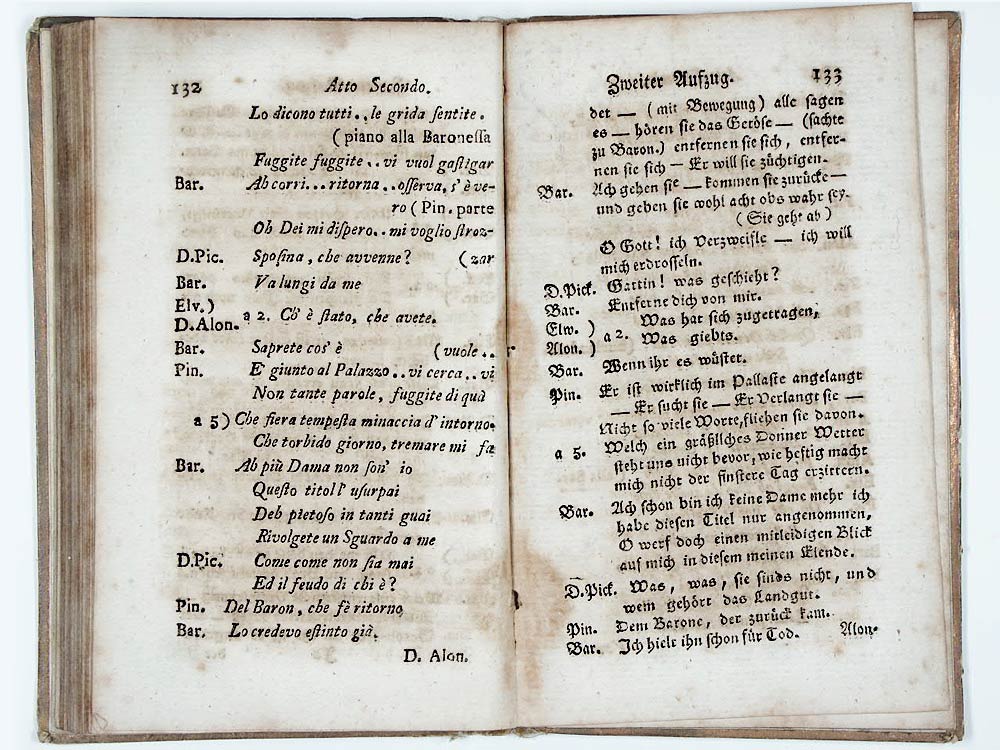 132 Atto Secondo.
Lo dicono tutti..le grida ſentite.
(piano alla Baroneſſa
Fuggite fuggite..vi vuol gaſtigar
Bar. Ah corri...ritorna..oſſerva, s'è ve-
ro (Pin. parte
Oh Dei mi diſpero..mi voglio ſtroz-
D.Pic. Spoſina, che avvenne? (zar
Bar. Va lungi da me
Elv.)
D.Alon. a 2. Co' è ſtato, che avete.
Bar. Saprete cos' è (vuole..
Pin. E' giunto al Palazzo..vi cerca..vi
Non tante parole, fuggite di quà
a 5) Che fiera tempeſta minaccia d'intorno.
Che torbido giorno, tremare mi fa
Bar. Ah più Dama non ſon' io
Queſto titoll' uſurpai
Deh pietoſo in tanti guai
Rivolgete un Sguardo a me
D.Pic. Come come non ſia mai
Ed il feudo di chi è?
Pin. Del Baron, che fè ritorno
Bar. Lo credevo eſtinto già.
D. Alon.
Zweiter Aufzug. 133
det — (mit Bewegung) alle ſagen
es — hören ſie das Getöſe — (ſachte
zu Baron.) entfernen ſie ſich, entfer-
nen ſie ſich — Er will ſie züchtigen.
Bar. Ach gehen ſie — kommen ſie zurücke —
und geben ſie wohl acht obs wahr ſey.
(Sie geht ab)
O Gott! ich verzweifle — ich will
mich erdroſſeln.
D.Pick. Gattin! was geſchieht?
Bar. Entferne dich von mir.
Elw. ) Was hat ſich zugetragen,
Alon. ) a 2. Was giebts.
Bar. Wenn ihr es wüſtet.
Pin. Er iſt wirklich im Pallaſte angelangt
— Er ſucht ſie — Er Verlangt ſie —
Nicht ſo viele Worte, fliehen ſie davon.
a 5. Welch ein gräßliches Donner Wetter
ſteht uns nicht bevor, wie heftig macht
mich nicht der finſtere Tag erzittern.
Bar. Ach ſchon bin ich keine Dame mehr ich
habe dieſen Titel nur angenommen,
O werf doch einen mitleidigen Blick
auf mich in dieſem meinen Elende.
D.Pick. Was, was, ſie ſinds nicht, und
wem gehört das Landgut.
Pin. Dem Barone, der zurück kam.
Bar. Ich hielt ihn ſchon für Tod. Alon-